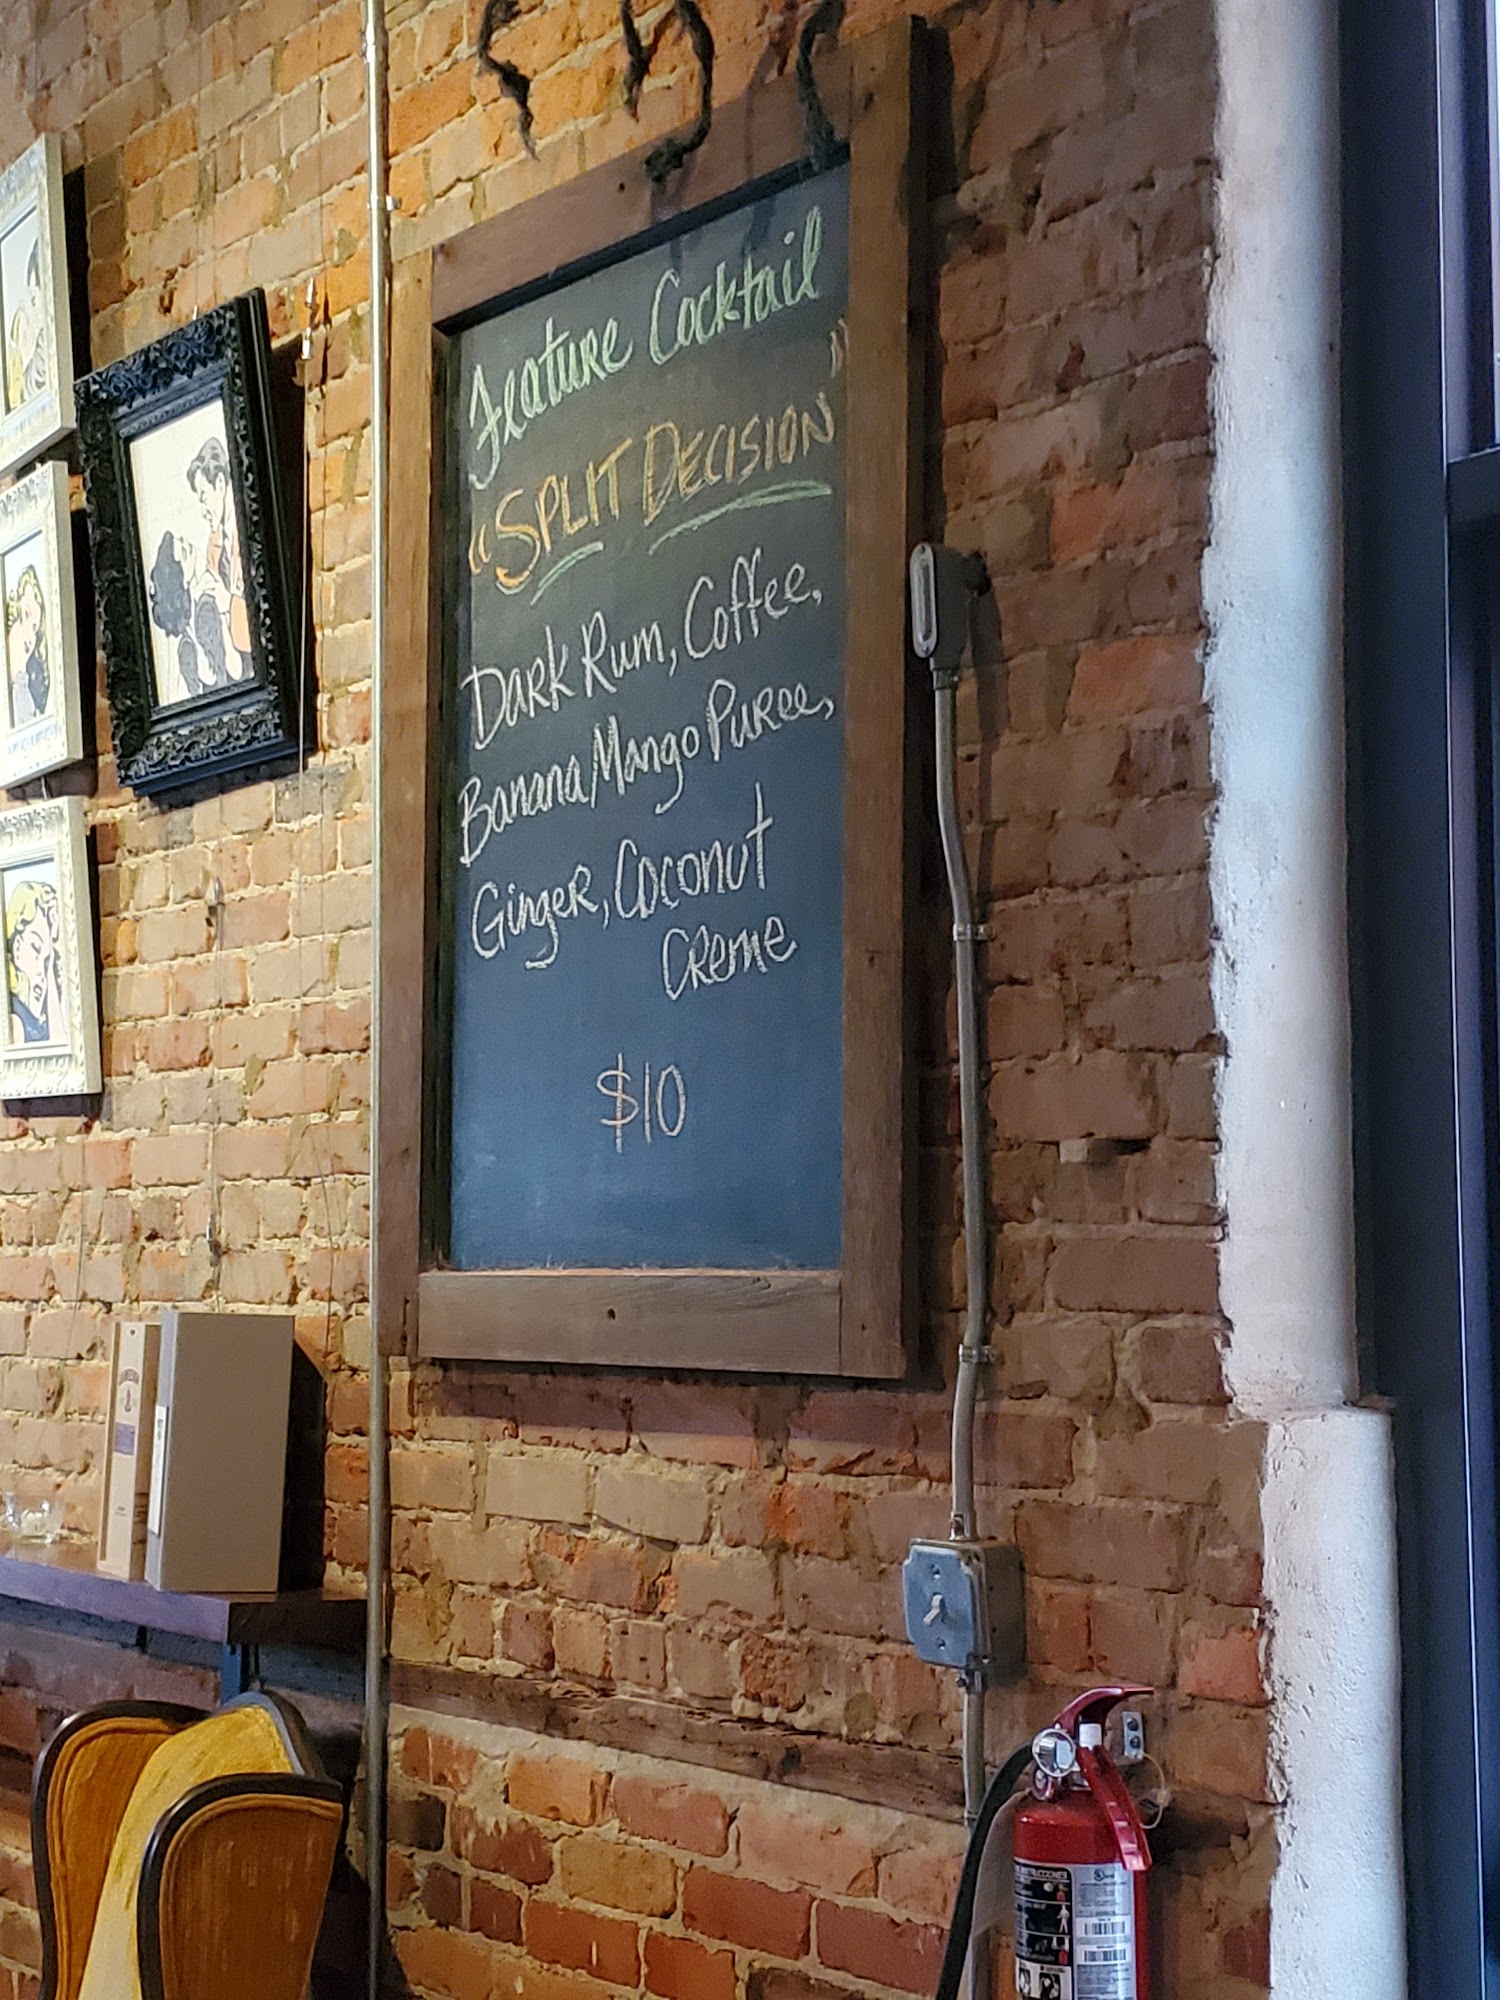 Feature Cocktail
"SPLIT DECISION"
Dark Rum, Coffee,
Banana/Mango Puree,
Ginger, Coconut
Creme
$10